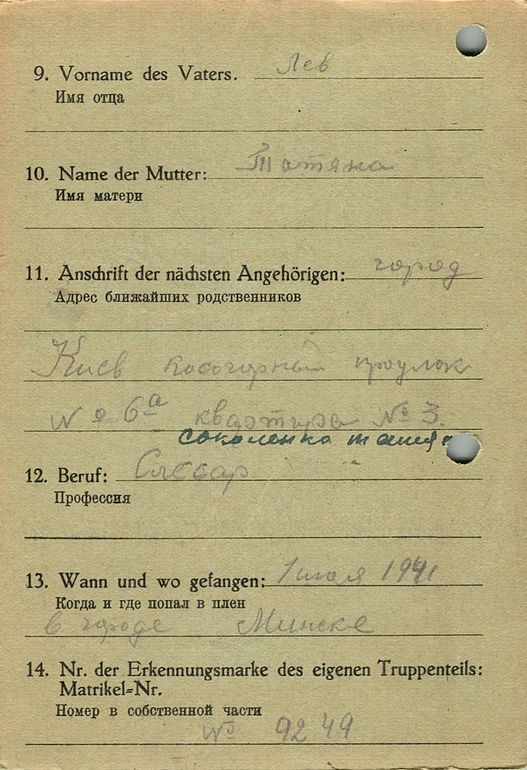 9. Vorname des Vaters. Лев
Имя отца
10. Name der Mutter: Татяна
Имя матери
11. Anschrift der nächsten Angehörigen: город
Адрес ближайших родственников
Киев косогорный проулок
№ 6а квартира № 3.
соколенко таня
12. Beruf: Слесар
Профессия
13. Wann und wo gefangen: 1 1941
Когда и где попал в плен
в городе Минске
14. Nr. der Erkennungsmarke des eigenen Truppenteils:
Matrikel-Nr.
Номер в собственной части
№ 9249